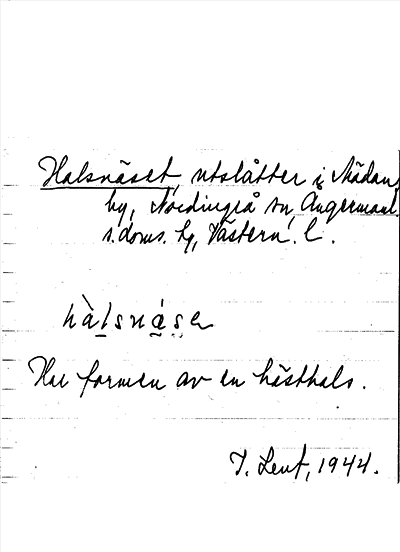 Halsnäset, utslåtter i Mädan
by, Nordingrå sn, Ångermanl.
s. doms. hg, Västern. l.
hàlsnáse
Har formen av en hästhals.
J. Lent, 1944.